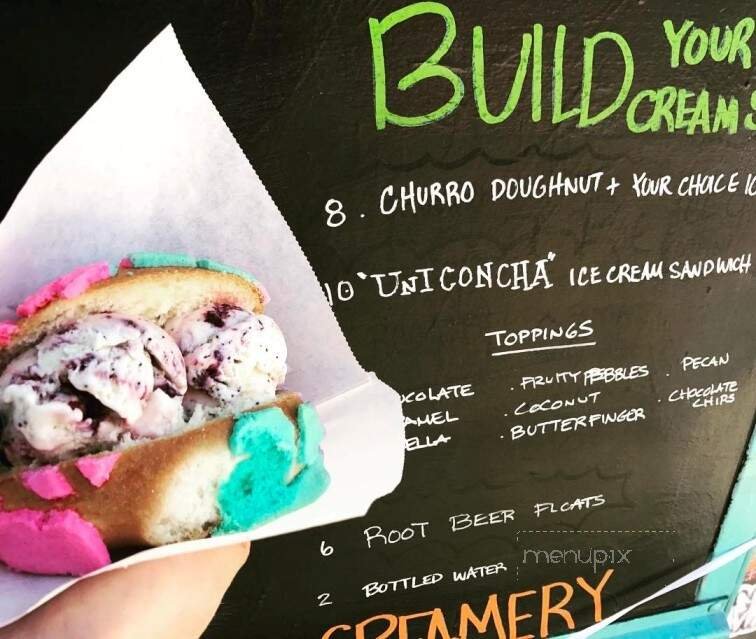 BUILD YOUR
CREAM
8. CHURRO DOUGHNUT + YOUR CHOICE
10 "UNICONCHA" ICE CREAM SANDWICH
TOPPINGS
COLATE · FRUITY PEBBLES · PECAN
AMEL · COCONUT · CHOCOLATE CHIPS
ELLA · BUTTERFINGER
6 ROOT BEER FLOATS
2 BOTTLED WATER
menupix
CREAMERY